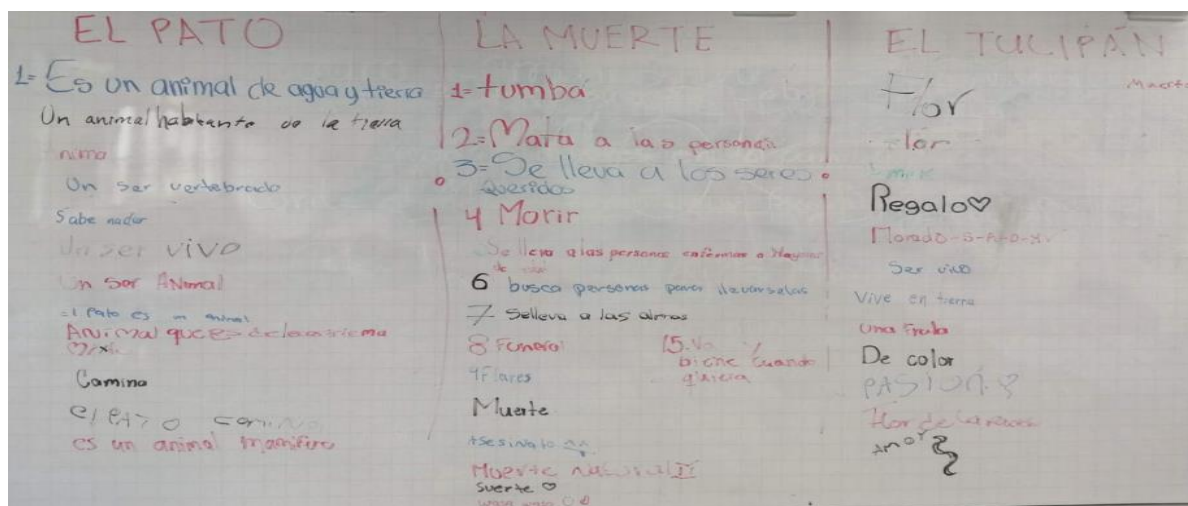 EL PATO
1= Es un animal de agua y tierra
Un animal habitante de la tierra
nima
Un ser vertebrado
Sabe nadar
Un ser vivo
Un ser ANimal
el Pato es un animal
ANimal que es de la
Camina
el PATO camina
es un animal mamifero
LA MUERTE
1= tumba
2= Mata a las personas
3= Se lleva a los seres
Queridos
4 Morir
Se lleva a las personas enfermas o Mayores
de
6 busca personas para llevarselas
7 Selleva a las almas
8 Funeral
15. Va y
biene cuando
quiera
9 Flores
Muerte
Asesinato
Muerte Natural II
Suerte ♡
EL TULIPÁN
Muerto
Flor
lor
Regalo♡
Morado-S-A-D-X.
Ser vivo
Vive en tierra
Una Fruta
De color
PASION
Flor de
Amor